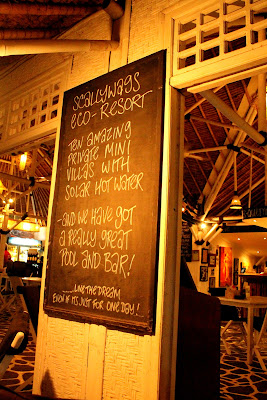 SCALLYWAGS
ECO-RESORT
TEN AMAZING
PRIVATE MINI
VILLAS WITH
SOLAR HOT WATER
-AND WE HAVE GOT
A REALLY GREAT
POOL AND BAR!
.....LIVE THE DREAM
EVEN IF ITS JUST FOR ONE DAY!....